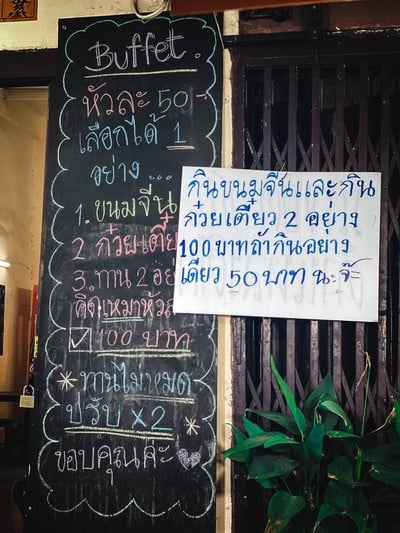 Buffet.
หัวละ 50.-
เลือกได้ 1
อย่าง...
1. ขนมจีน
2 ก๋วยเตี๋ย
3. ทาน 2 อย่
คิดเหมาหัวล
☑ 100 บาท
* ทานไม่หมด
ปรับ x2 *
ขอบคุณค่ะ ♡
กินขนมจีนและกิน
ก๋วยเตี๋ยว 2 อย่าง
100 บาทถ้ากินอย่าง
เดียว 50 บาท นะจ๊ะ